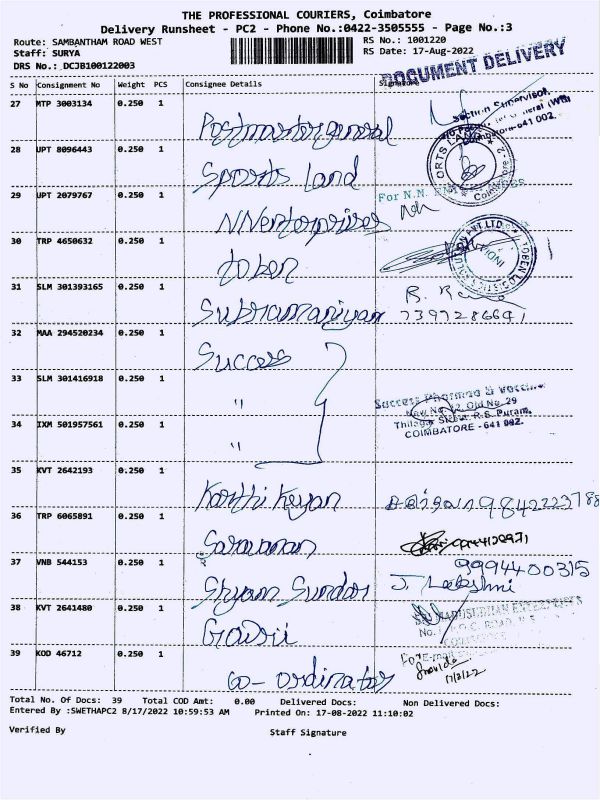 THE PROFESSIONAL COURIERS, Coimbatore
Delivery Runsheet - PC2 - Phone No.:0422-3505555 - Page No.:3
Route: SAMBANTHAM ROAD WEST
RS No.: 1001220
Staff: SURYA
RS Date: 17-Aug-2022
DRS No.: DCJB100122003
DOCUMENT DELIVERY
S No Consignment No Weight PCS Consignee Details Signature
27 MTP 3003134 0.250 1 Postmaster general
Section Supervisor,
641 002.
28 UPT 8096443 0.250 1 Sports Land
29 UPT 2079767 0.250 1 NNenterprises
For N.N.
30 TRP 4650632 0.250 1 token
31 SLM 301393165 0.250 1 Subramaniyan
7397286641
32 MAA 294520234 0.250 1 Success
33 SLM 301416918 0.250 1 "
Success Pharma & Vaccine
New No. 12, Old No. 29
34 IXM 501957561 0.250 1 "
R.S. Puram,
COIMBATORE - 641 002.
35 KVT 2642193 0.250 1 Karthi Keyan
9842223788
36 TRP 6065891 0.250 1 Saravanan
37 VNB 544153 0.250 1 Shyam Sundar
9994400315
J. Lakshmi
38 KVT 2641480 0.250 1 Gowri
39 KOD 46712 0.250 1 co-ordinator
17/8/22
Total No. Of Docs: 39 Total COD Amt: 0.00 Delivered Docs: Non Delivered Docs:
Entered By :SWETHAPC2 8/17/2022 10:59:53 AM Printed On: 17-08-2022 11:10:02
Verified By Staff Signature